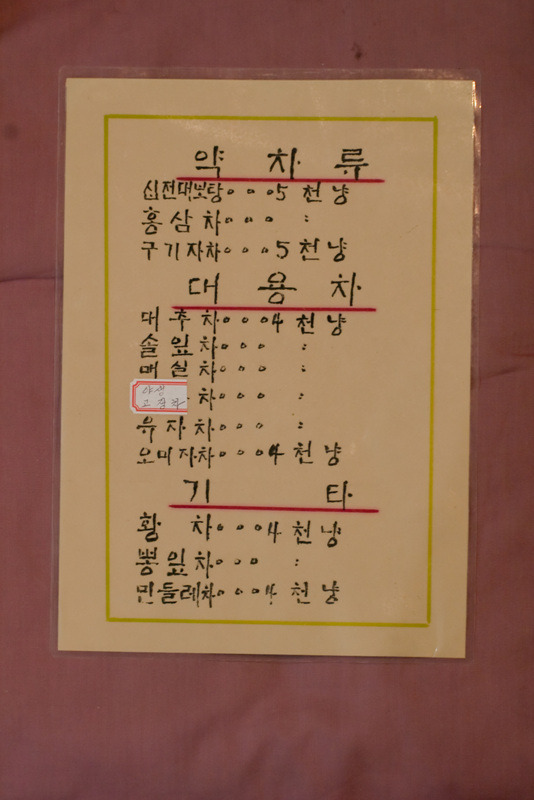 약 차 류
십전대보탕。。。5 천 냥
홍 삼 차。。。 :
구 기 자 차。。。5 천 냥
대 용 차
대 추 차。。。4 천 냥
솔 잎 차。。。 :
매 실 차。。。 :
야생
차。。。 :
유 자 차。。。 :
오 미 자 차。。。4 천 냥
기 타
황 차。。。4 천 냥
뽕 잎 차。。。 :
민들레차。。。4 천 냥